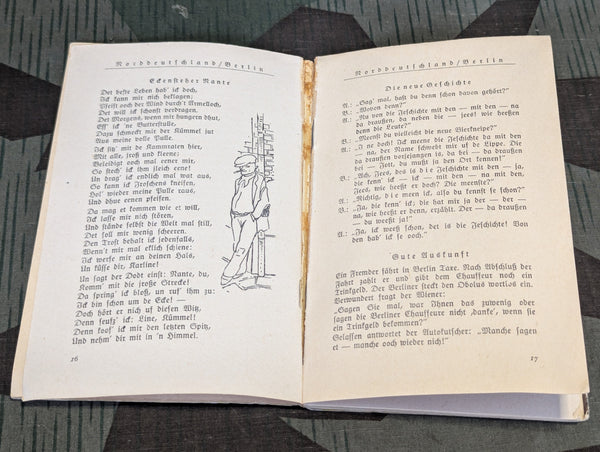 Norddeutschland/Berlin
Eckensteher Nante
Det beste Leben hab' ick doch,
Ick kann mir nich beklagen;
Pfeift ooch der Wind durch't Ärmelloch,
Det will ick schonst verdragen.
Det Morgens, wenn mir hungern dhut,
Eß' ick 'ne Butterstulle,
Dazu schmeckt mir der Kümmel jut
Aus meine volle Pulle.
Ick sitz' mit de Kammraten hier,
Mit alle, jroß und kleene;
Beleidigt ooch mal eener mir,
So stech' ick ihm jleich eene!
Un drag' ick endlich mal wat aus,
So kann ick Jroschens kneifen,
Hol' wieder meine Pulle raus,
Und dhue eenen pfeifen.
Da mag et kommen wie et will,
Ick lasse mir nich stören,
Und stünde selbst die Welt mal still,
Det soll mir wenig scheeren.
Den Trost behalt ick jedenfalls,
Wenn't mir mal eklich schiene:
Ick werfe mir an deinen Hals,
Un küsse dir, Karline!
Un sagt der Dodt einst: Nante, du,
Komm' mit die jroße Strecke!
Da spring' ick bloß, un ruf' ihm zu:
Ick bin schon um de Ecke! —
Doch hört er nich uf diesen Witz,
Denn seufz' ick: Line, Kümmel!
Denn koof' ick mir den letzten Spitz,
Und nehm' dir mit in 'n Himmel.
16
Norddeutschland/Berlin
Die neue Geschichte
A.: „Sag' mal, hast du denn schon davon gehört?"
B.: „Wovon denn?"
A.: „Na von die Jeschichte mit den — mit den — na
da draußen, da neben die — jees! wie heeßen
denn die Leute?"
B.: „Meenst du vielleicht die neue Bierkneipe?"
A.: „I ne doch! Ick meene die Jeschichte da mit den
— na, der Name schwebt mir uf de Lippe. Die
da draußen vorjefangen is, da bei — da draußen
bei de — Jott, du mußt ja den Ort kennen!"
B.: „Ach, Jees, des is die Jeschichte mit den — ja,
die kenn' ick — die is mit den — mit den — na,
Jees, wie heeßt er doch? Die meenste?"
A.: „Richtig, die meen ick, also du kennst se schon?"
B.: „Ja, die kenn' ick; die hat mir ja der — der —
na, wie heeßt er denn, erzählt. Der — da draußen
— du weeßt ja!"
A.: „Ja, ick weeß schon, det is die Jeschichte! Von
den hab' ick se ooch."
Gute Auskunft
Ein Fremder fährt in Berlin Taxe. Nach Abschluß der
Fahrt zahlt er und gibt dem Chauffeur noch ein
Trinkgeld. Der Berliner steckt den Obolus wortlos ein.
Verwundert fragt der Wiener:
„Sagen Sie mal, war Ihnen das zuwenig oder
sagen die Berliner Chauffeure nicht ‚danke', wenn sie
ein Trinkgeld bekommen?"
Gelassen antwortet der Autokutscher: „Manche sagen
et — manche ooch wieder nich!"
17